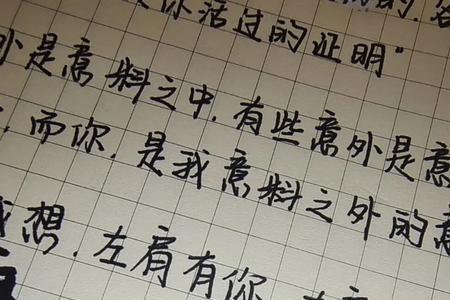 你活过的证明"
是意料之中.有些意外是意
而你.是我意料之外的意
想.左肩有你